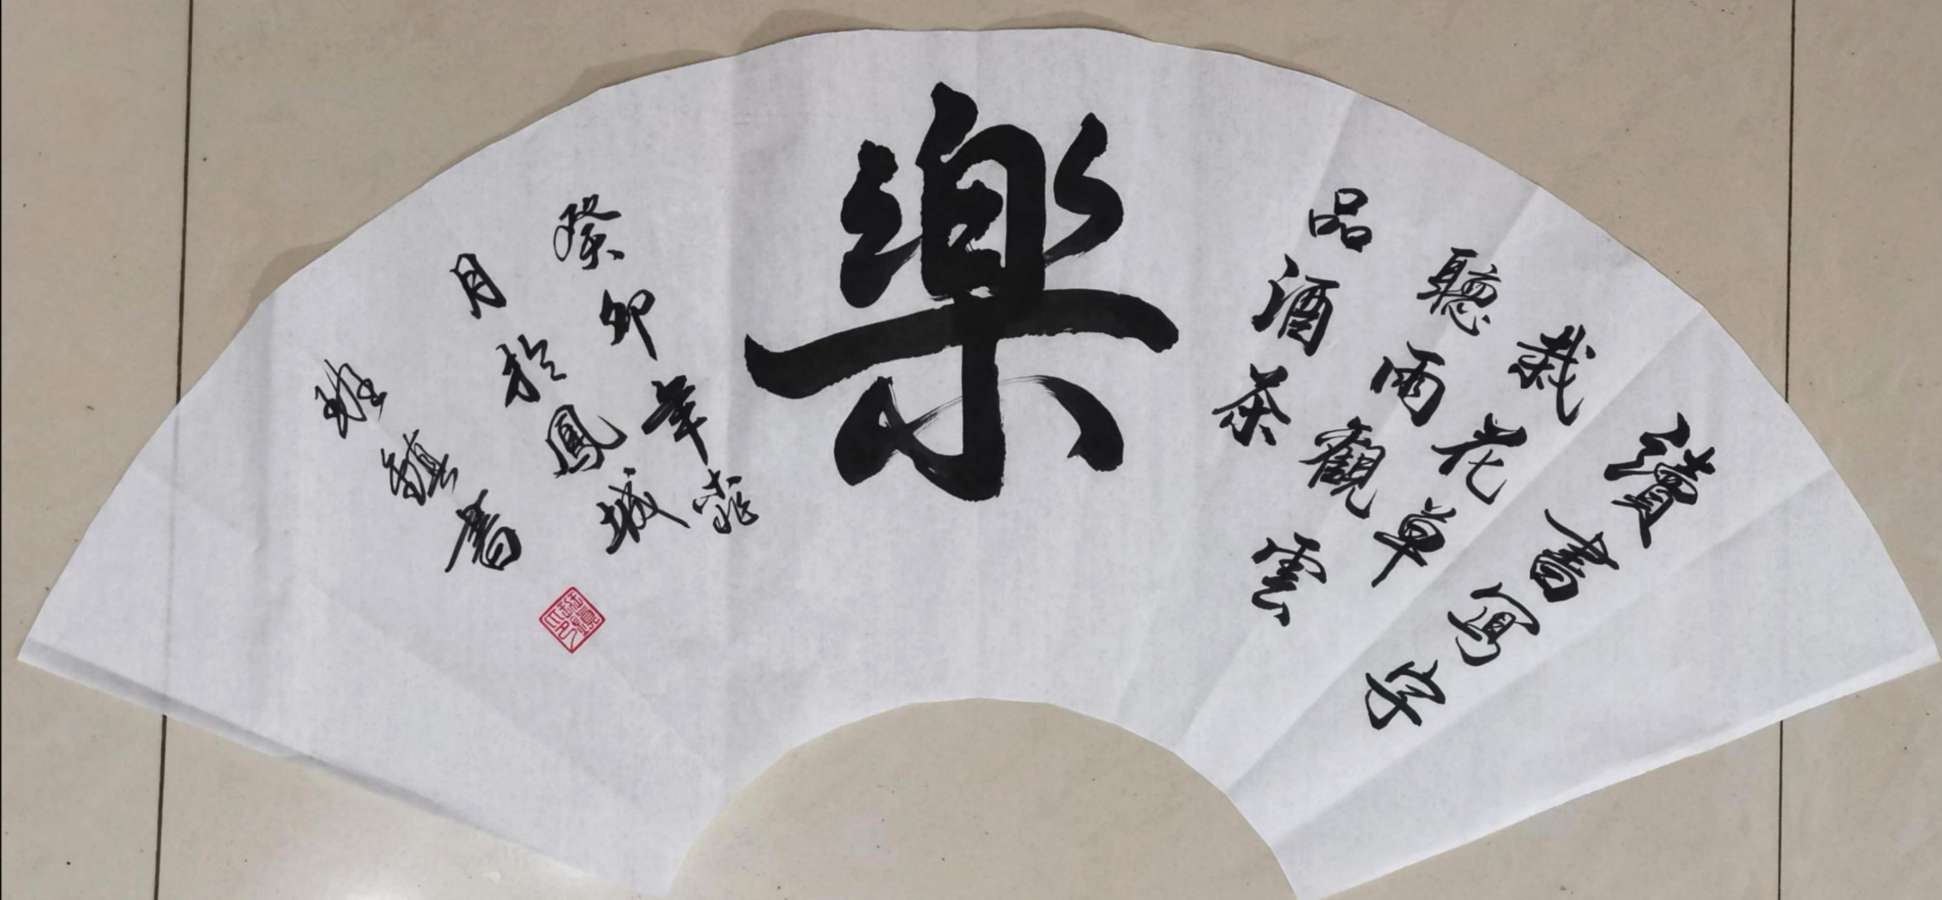 讀書寫字
栽花草
聽雨觀雲
品酒茶
樂
癸卯年
月於鳳城
鎮書